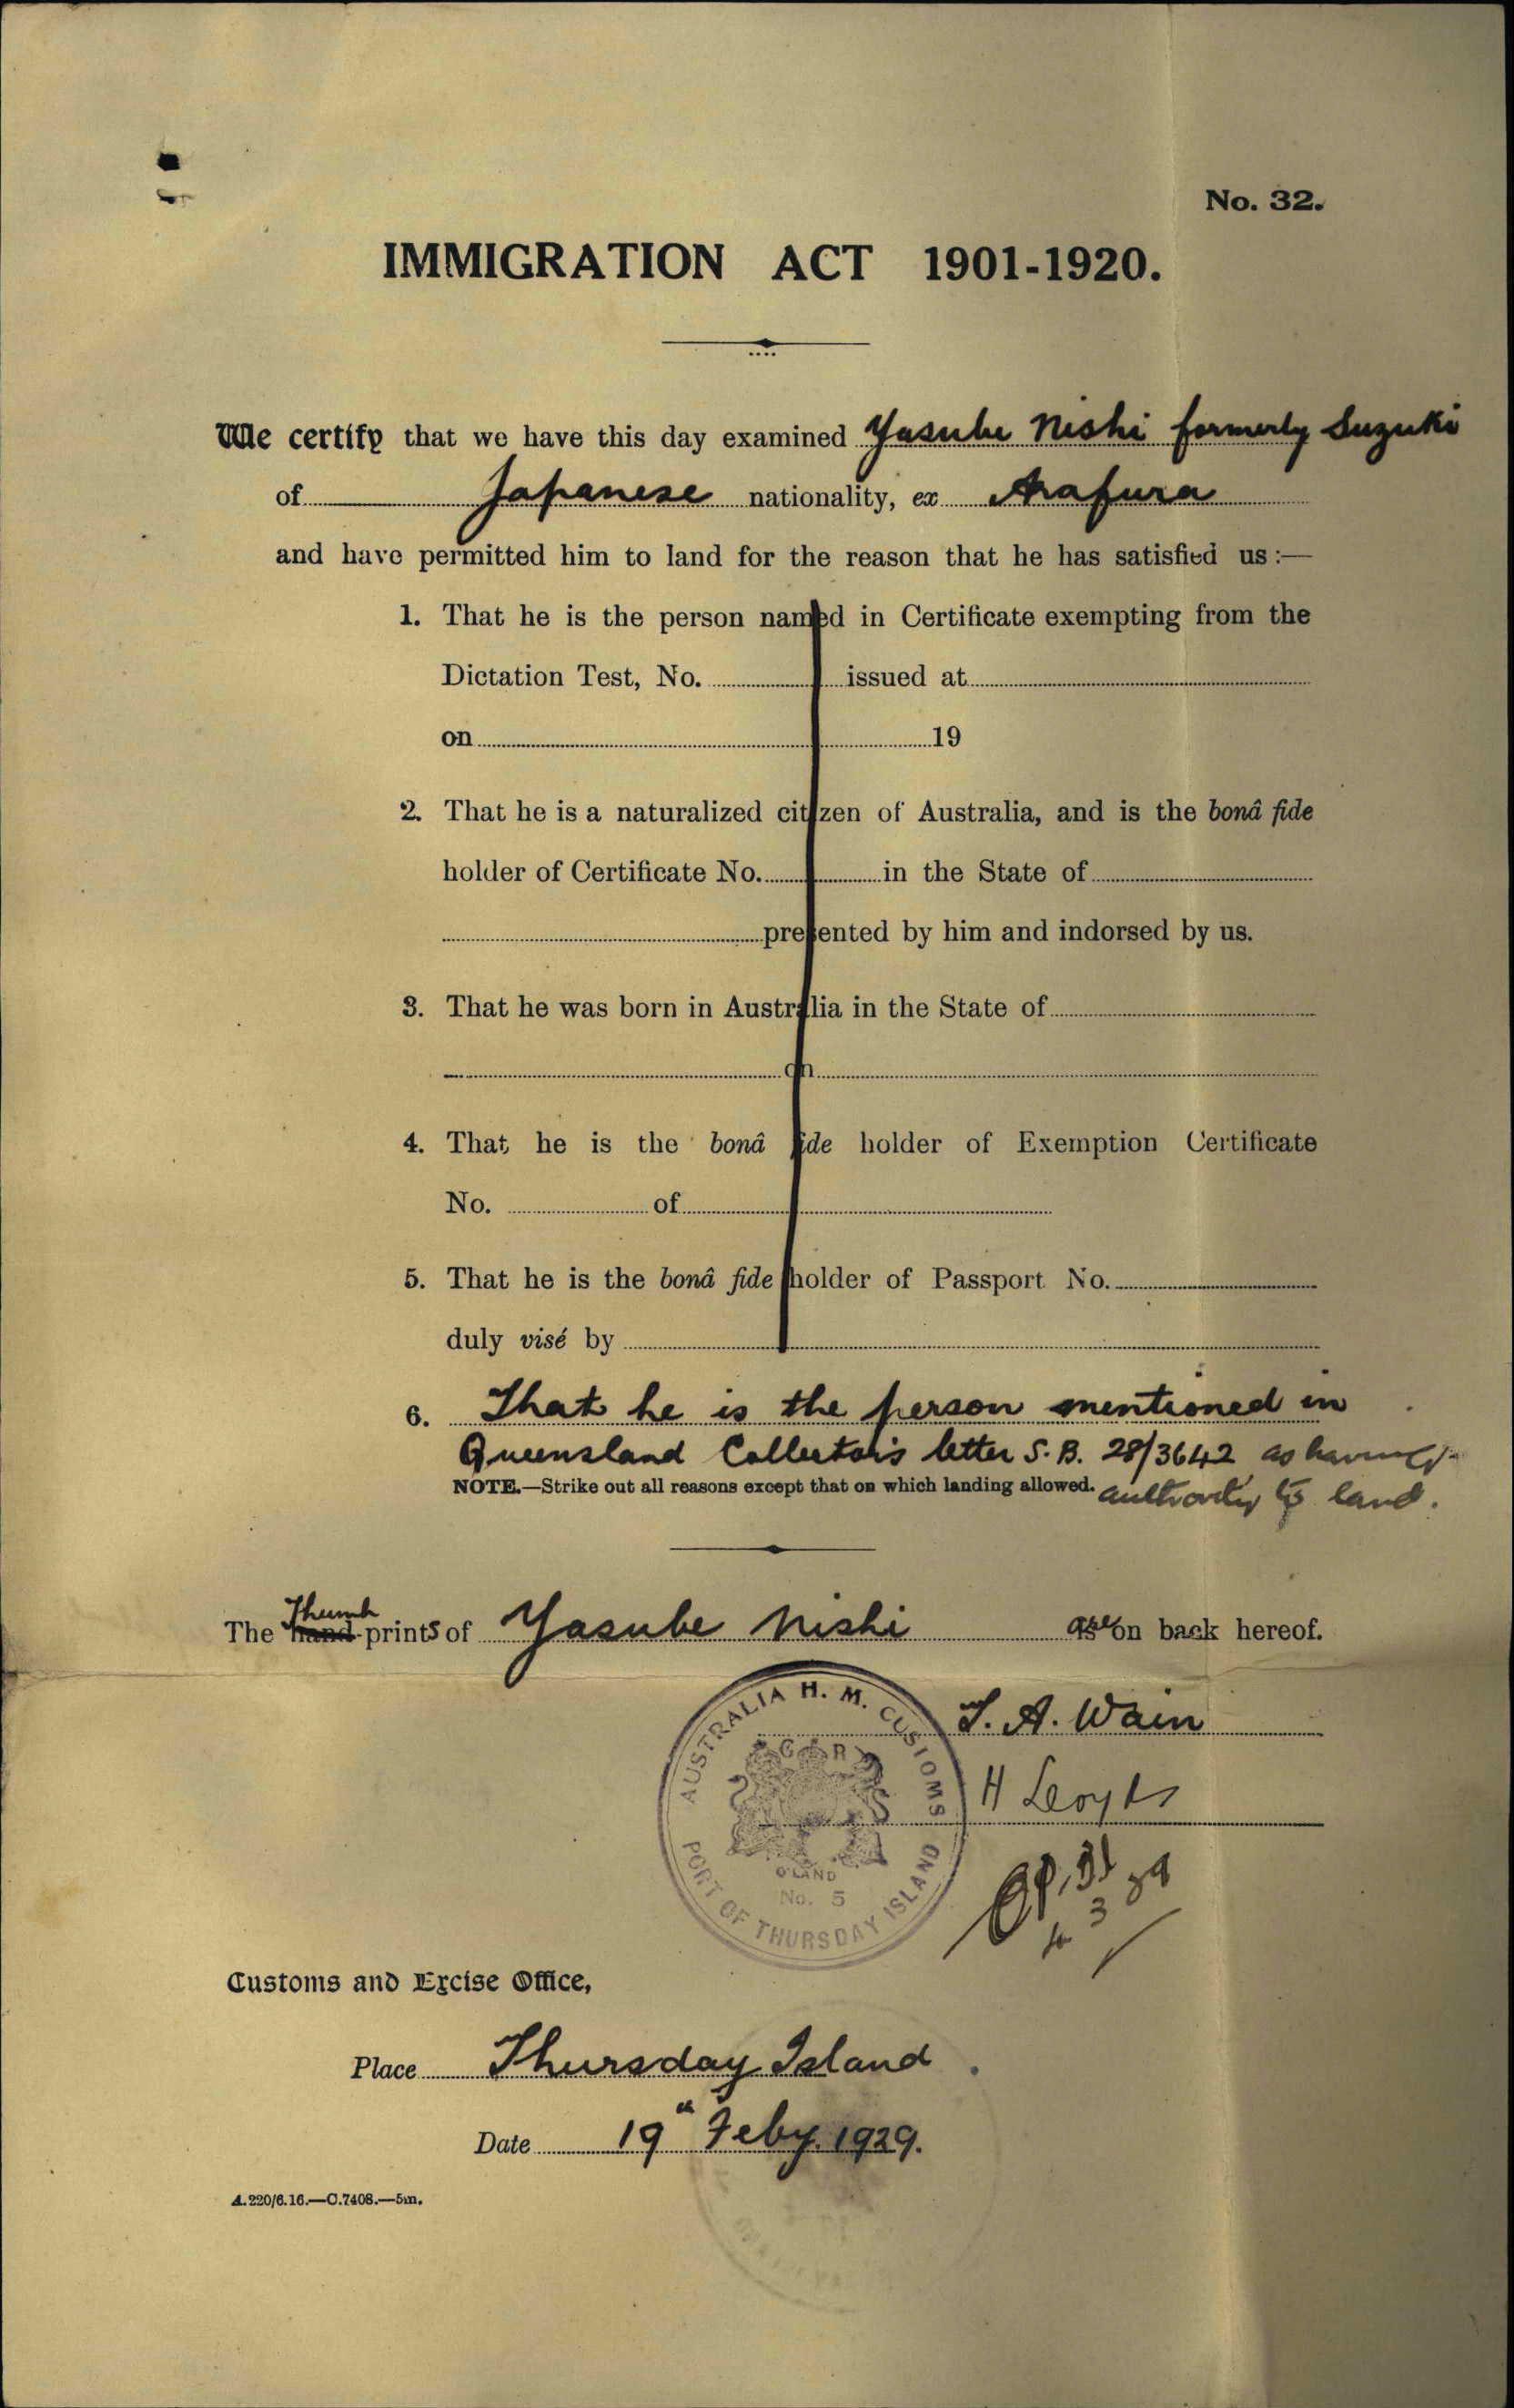 No. 32.
IMMIGRATION ACT 1901-1920.
We certify that we have this day examined Yasube Nishi formerly Suzuki
of Japanese nationality, ex Arafura
and have permitted him to land for the reason that he has satisfied us :—
1. That he is the person named in Certificate exempting from the
Dictation Test, No. issued at
on 19
2. That he is a naturalized citizen of Australia, and is the bonâ fide
holder of Certificate No. in the State of
presented by him and indorsed by us.
3. That he was born in Australia in the State of
on
4. That he is the bonâ fide holder of Exemption Certificate
No. of
5. That he is the bonâ fide holder of Passport No.
duly visé by
6. That he is the person mentioned in
Queensland Collector's letter S.B. 28/3642 as having
NOTE.—Strike out all reasons except that on which landing allowed. authority to land.
Thumb
The hand-prints of Yasube Nishi are on back hereof.
AUSTRALIA H. M. CUSTOMS
G R
Q'LAND
No. 5
PORT OF THURSDAY ISLAND
T. A. Wain
H
Customs and Excise Office,
Place Thursday Island.
Date 19th Feby. 1929.
A.220/6.16.—C.7408.—5m.